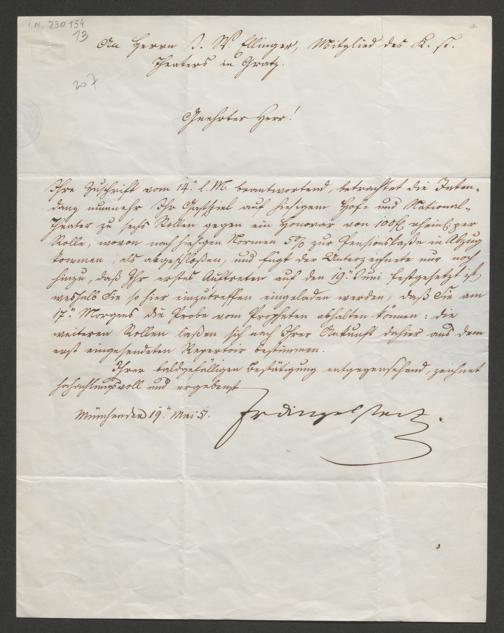 I.N. 230.154
13
An Herrn J. W. Ellinger, Mitglied des K. K.
Theaters in Gratz.
207
Geehrter Herr!
Ihre Zuschrift vom 14. l. M. beantwortend, betrachtet die Inten-
danz nunmehr Ihr Gastspiel auf hiesigem Hof- und National-
Theater zu sechs Rollen gegen ein Honorar von 100 f. rheinl. per
Rolle, wovon nach hiesigen Normen 5% zur Pensionskasse in Abzug
kommen, als abgeschloßen, und fügt der Unterzeichnete nur noch
hinzu, daß Ihr erstes Auftreten auf den 19. Juni festgesetzt ist,
weshalb Sie so hier einzutreffen eingeladen werden, daß Sie am
17. Morgens die Probe vom Propheten abhalten können; die
weiteren Rollen laßen sich nach Ihrer Ankunft dahier aus dem
erst eingesendeten Repertoir bestimmen.
Ihrer baldgefälligen Bestätigung entgegensehend, zeichnet
hochachtungsvoll und ergebenst
München den 19. Mai 57.
Fr Dingelstedt.